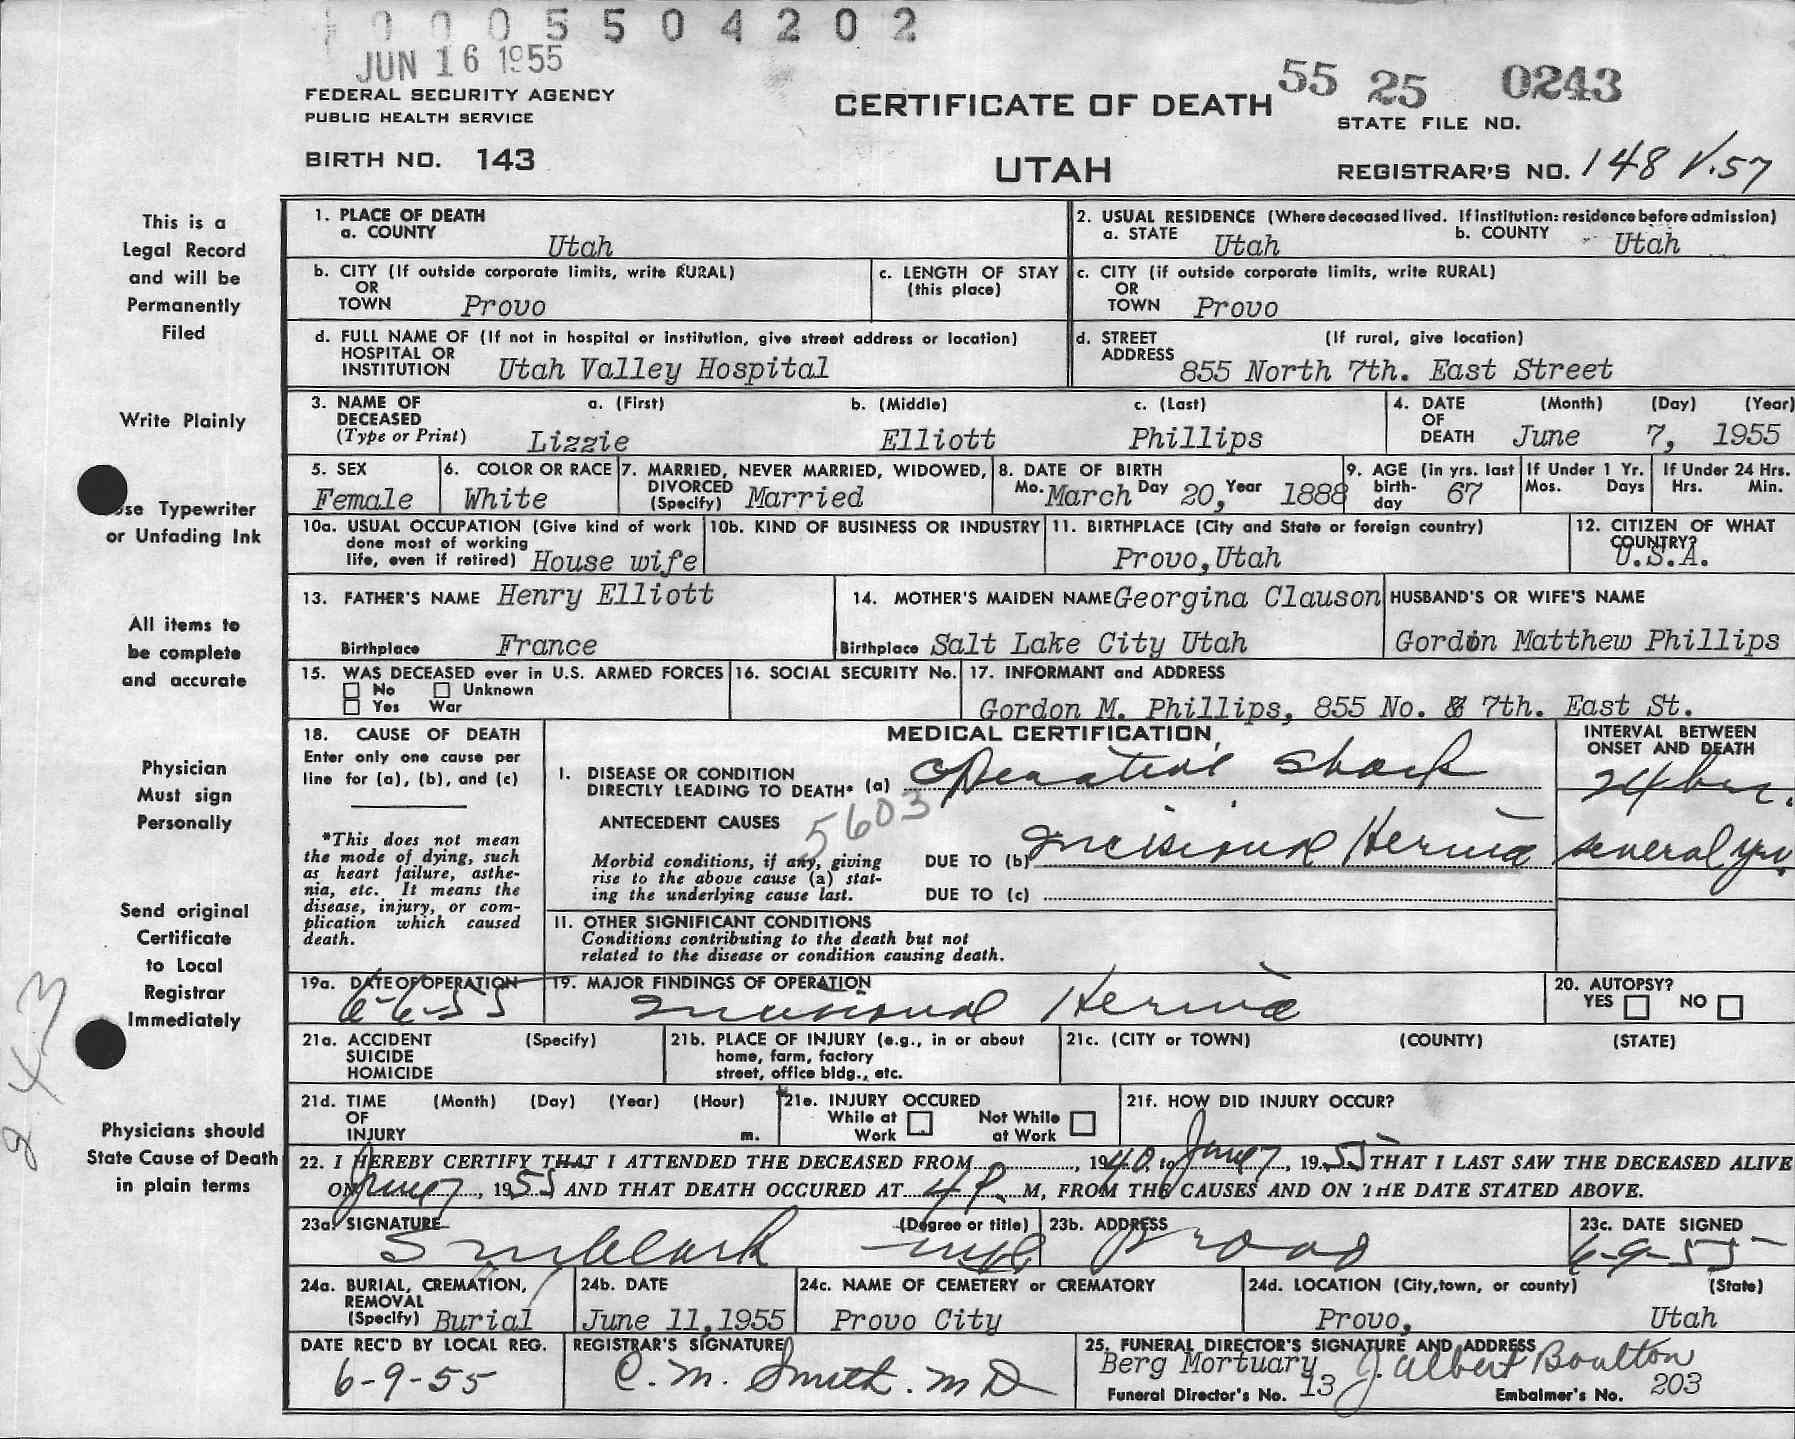 0005504202
JUN 16 1955
FEDERAL SECURITY AGENCY
PUBLIC HEALTH SERVICE
CERTIFICATE OF DEATH
55 25 0243
STATE FILE NO.
BIRTH NO. 143
UTAH
REGISTRAR'S NO. 148 V.57
This is a
Legal Record
and will be
Permanently
Filed
Write Plainly
se Typewriter
or Unfading Ink
All items to
be complete
and accurate
Physician
Must sign
Personally
Send original
Certificate
to Local
Registrar
Immediately
Physicians should
State Cause of Death
in plain terms
243
1. PLACE OF DEATH
a. COUNTY
Utah
2. USUAL RESIDENCE (Where deceased lived. If institution: residence before admission)
a. STATE Utah b. COUNTY Utah
b. CITY (If outside corporate limits, write RURAL)
OR
TOWN Provo
c. LENGTH OF STAY
(this place)
c. CITY (if outside corporate limits, write RURAL)
OR
TOWN Provo
d. FULL NAME OF (If not in hospital or institution, give street address or location)
HOSPITAL OR
INSTITUTION Utah Valley Hospital
d. STREET (If rural, give location)
ADDRESS
855 North 7th. East Street
3. NAME OF a. (First) b. (Middle) c. (Last)
DECEASED
(Type or Print) Lizzie Elliott Phillips
4. DATE (Month) (Day) (Year)
OF
DEATH June 7, 1955
5. SEX
Female
6. COLOR OR RACE
White
7. MARRIED, NEVER MARRIED, WIDOWED,
DIVORCED
(Specify) Married
8. DATE OF BIRTH
Mo. March Day 20, Year 1888
9. AGE (in yrs. last
birth-
day 67
If Under 1 Yr.
Mos. Days
If Under 24 Hrs.
Hrs. Min.
10a. USUAL OCCUPATION (Give kind of work
done most of working
life, even if retired) House wife
10b. KIND OF BUSINESS OR INDUSTRY
11. BIRTHPLACE (City and State or foreign country)
Provo, Utah
12. CITIZEN OF WHAT
COUNTRY?
U.S.A.
13. FATHER'S NAME Henry Elliott
Birthplace France
14. MOTHER'S MAIDEN NAME Georgina Clauson
Birthplace Salt Lake City Utah
HUSBAND'S OR WIFE'S NAME
Gordon Matthew Phillips
15. WAS DECEASED ever in U.S. ARMED FORCES
No Unknown
Yes War
16. SOCIAL SECURITY No.
17. INFORMANT and ADDRESS
Gordon M. Phillips, 855 No. 7th. East St.
18. CAUSE OF DEATH
Enter only one cause per
line for (a), (b), and (c)
*This does not mean
the mode of dying, such
as heart failure, asthe-
nia, etc. It means the
disease, injury, or com-
plication which caused
death.
MEDICAL CERTIFICATION
I. DISEASE OR CONDITION
DIRECTLY LEADING TO DEATH* (a) Operative Shock
ANTECEDENT CAUSES
5603
Morbid conditions, if any, giving
rise to the above cause (a) stat-
ing the underlying cause last.
DUE TO (b) Incisional Hernia
DUE TO (c)
II. OTHER SIGNIFICANT CONDITIONS
Conditions contributing to the death but not
related to the disease or condition causing death.
INTERVAL BETWEEN
ONSET AND DEATH
24 hr.
several yr.
19a. DATE OF OPERATION
6-6-55
19. MAJOR FINDINGS OF OPERATION
Incisional Hernia
20. AUTOPSY?
YES NO
21a. ACCIDENT (Specify)
SUICIDE
HOMICIDE
21b. PLACE OF INJURY (e.g., in or about
home, farm, factory
street, office bldg., etc.
21c. (CITY or TOWN) (COUNTY) (STATE)
21d. TIME (Month) (Day) (Year) (Hour)
OF
INJURY m.
21e. INJURY OCCURED
While at Work Not While at Work
21f. HOW DID INJURY OCCUR?
22. I HEREBY CERTIFY THAT I ATTENDED THE DECEASED FROM , 1940, to June 7, 1955 THAT I LAST SAW THE DECEASED ALIVE
ON June 7, 1955 AND THAT DEATH OCCURED AT 4 P. M, FROM THE CAUSES AND ON THE DATE STATED ABOVE.
23a. SIGNATURE (Degree or title)
Clark MD
23b. ADDRESS
Provo
23c. DATE SIGNED
6-9-55
24a. BURIAL, CREMATION,
REMOVAL
(Specify) Burial
24b. DATE
June 11, 1955
24c. NAME OF CEMETERY or CREMATORY
Provo City
24d. LOCATION (City, town, or county) (State)
Provo, Utah
DATE REC'D BY LOCAL REG.
6-9-55
REGISTRAR'S SIGNATURE
C. M. Smith. MD
25. FUNERAL DIRECTOR'S SIGNATURE AND ADDRESS
Berg Mortuary J. Albert Boulton
Funeral Director's No. 13 Embalmer's No. 203